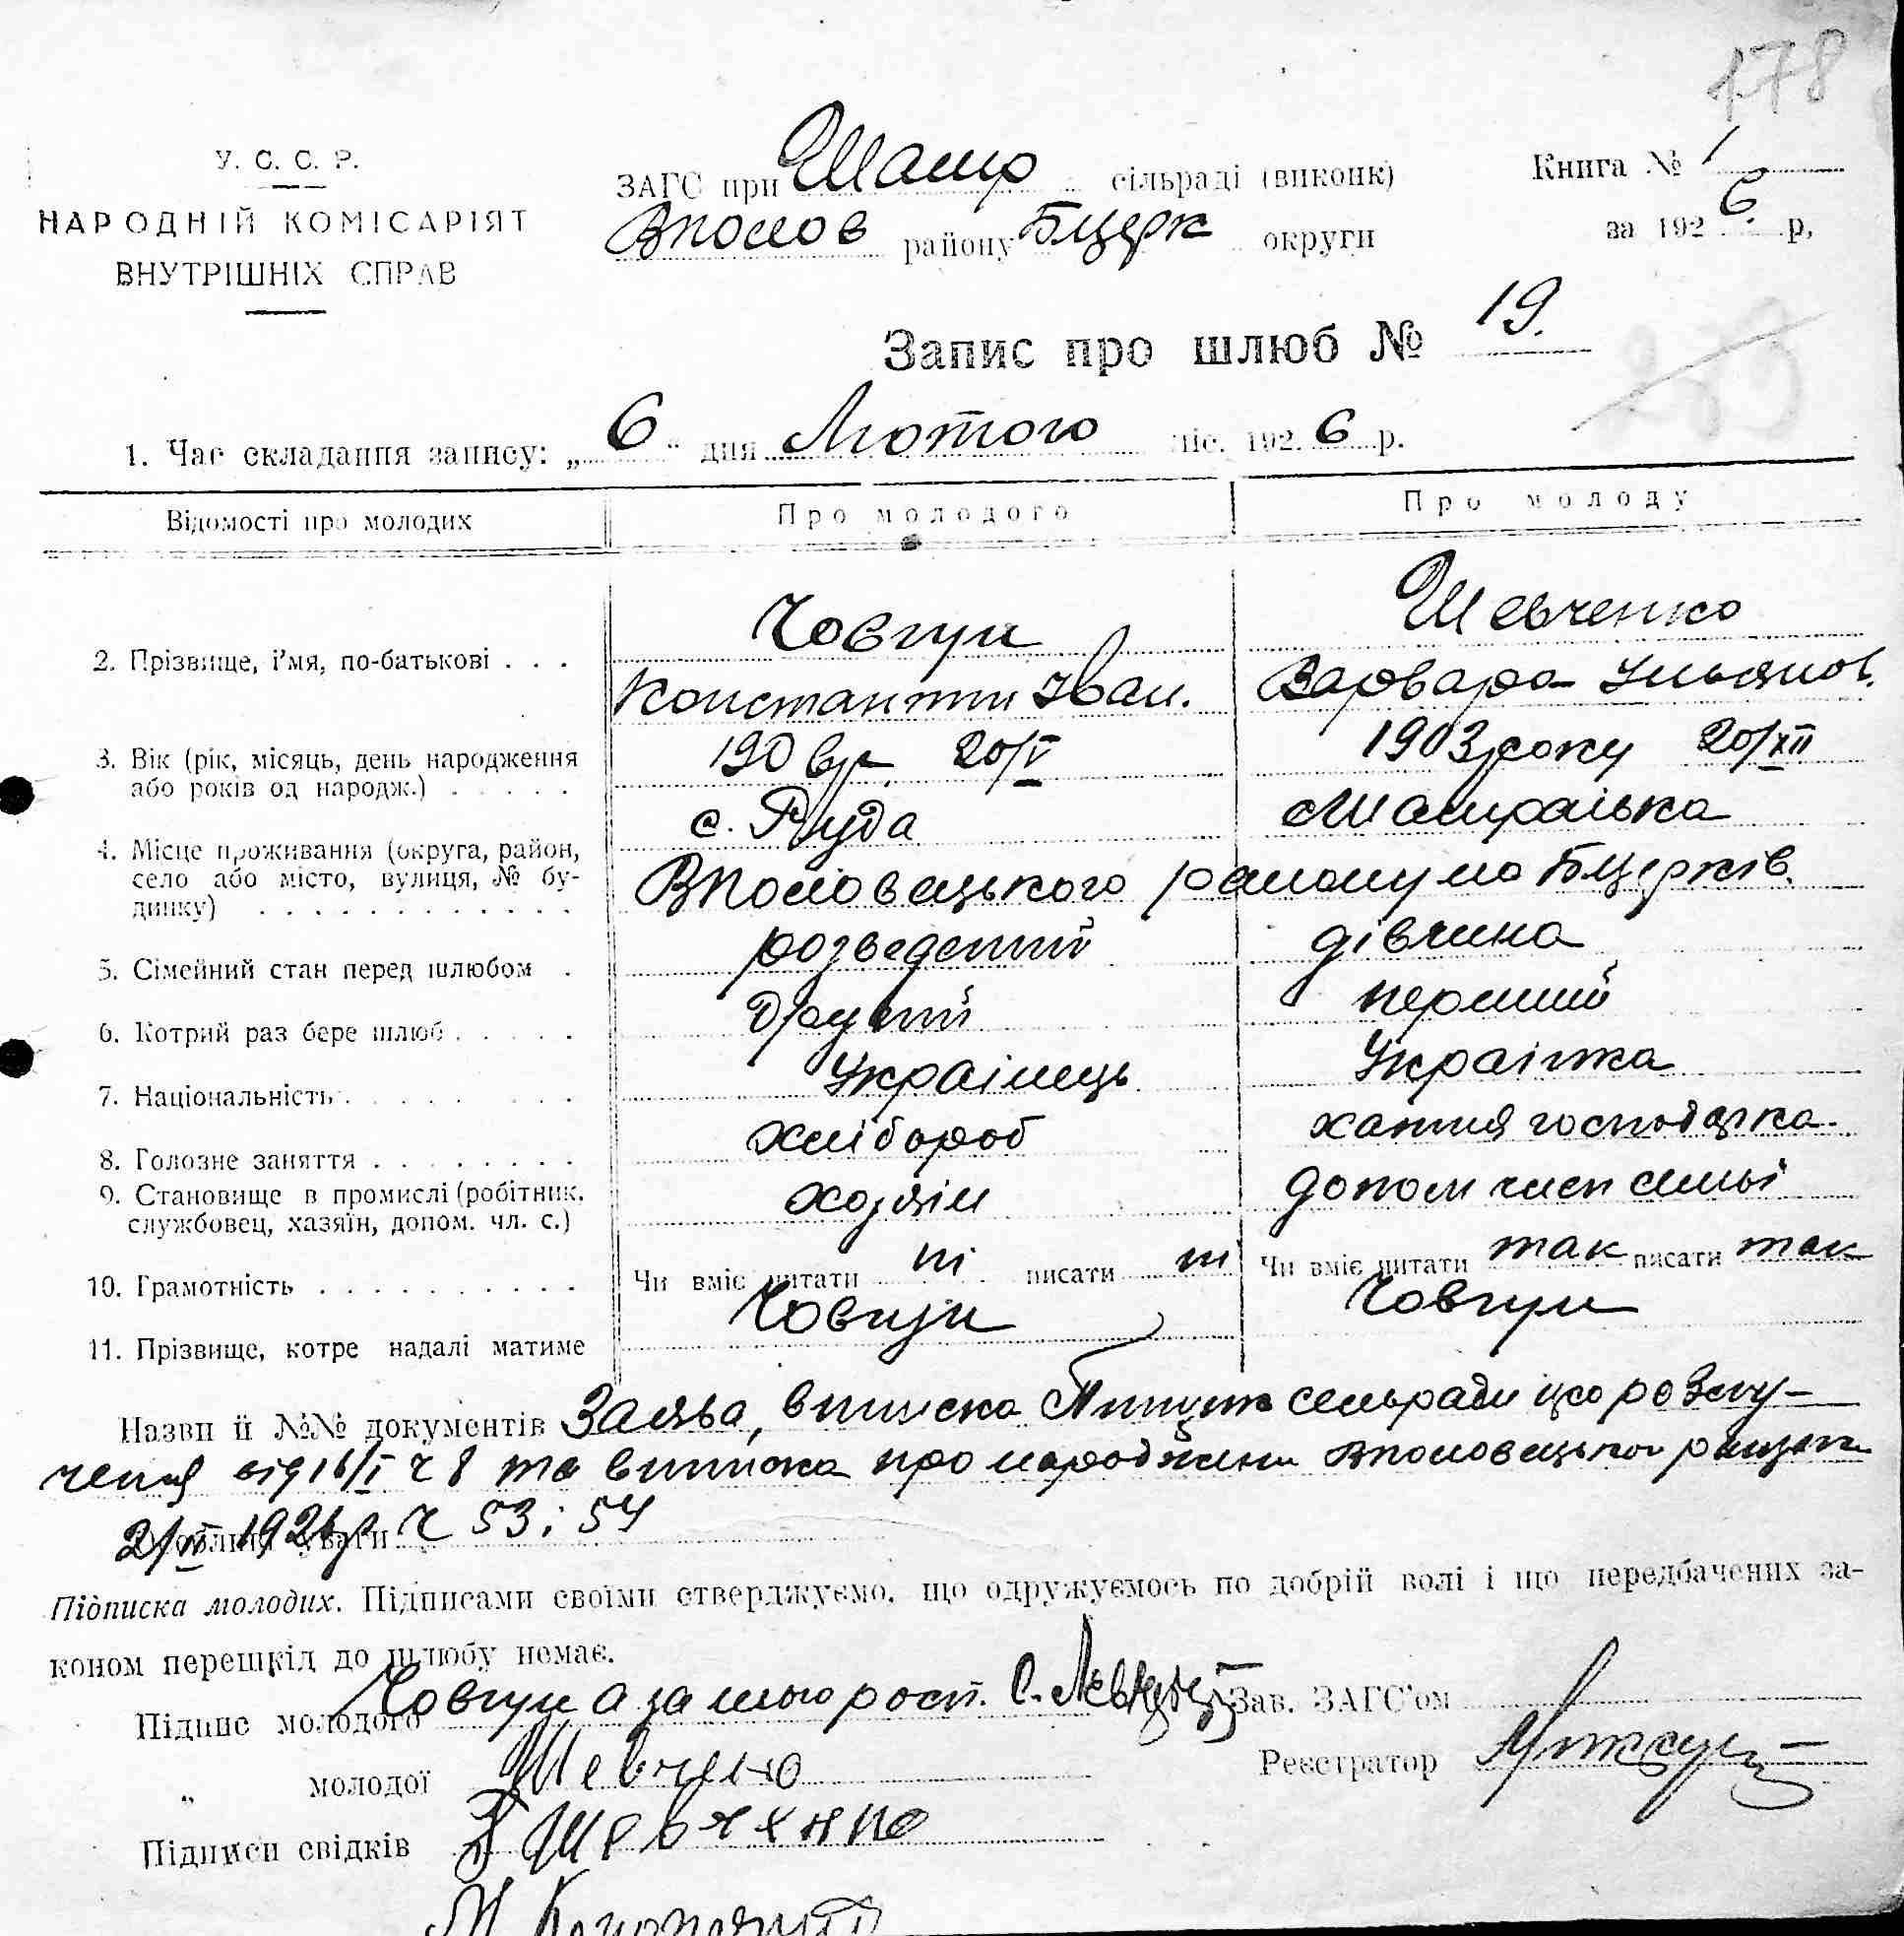 178
У. С. С. Р.
НАРОДНІЙ КОМІСАРІЯТ
ВНУТРІШНІХ СПРАВ
ЗАГС при Шамр сільраді (виконк)
Вполов району Бцерк округи
Книга № 1
за 1926 р,
Запис про шлюб № 19.
1. Час складання запису: „6“ дня Лютого міс. 1926 р.
Відомості про молодих
Про молодого
Про молоду
2. Прізвище, і'мя, по-батькові . . .
Човгун
Константин Іван.
Шевченко
Варвара Ульянов.
3. Вік (рік, місяць, день народження
або років од народж.) . . . . .
20/V
1903 року 20/XII
4. Місце проживання (округа, район,
село або місто, вулиця, № бу-
динку) . . . . . . . . . . . .
с. Руда
Шамраївка
Вполовецького району на Бцерків.
5. Сімейний стан перед шлюбом .
розведений
дівчина
6. Котрий раз бере шлюб . . . . .
другий
перший
7. Національність . . . . . . . .
Українець
Українка
8. Головне заняття . . . . . . . .
хлібороб
хатня господарка.
9. Становище в промислі (робітник,
службовец, хазяїн, допом. чл. с.)
хозяїн
допом член семьі
10. Грамотність . . . . . . . . . .
Чи вміє читати ні писати ні
Чи вміє читати так писати так
11. Прізвище, котре надалі матиме
Човгун
Човгун
Назви й №№ документів Заява, виписка сельради що розлу-
чення від 16/I ч 8 та виписка про народжини Вполовецького
2/II 1926 р ч 53 і 54
Підписка молодих. Підписами своїми стверджуємо, що одружуємось по добрій волі і що передбачених за-
коном перешкід до шлюбу немає.
Підпис молодого Човгун а за нього росп. С.
Зав. ЗАГС'ом
„ молодої Шевченко
Реєстратор
Підписи свідків Шевченко